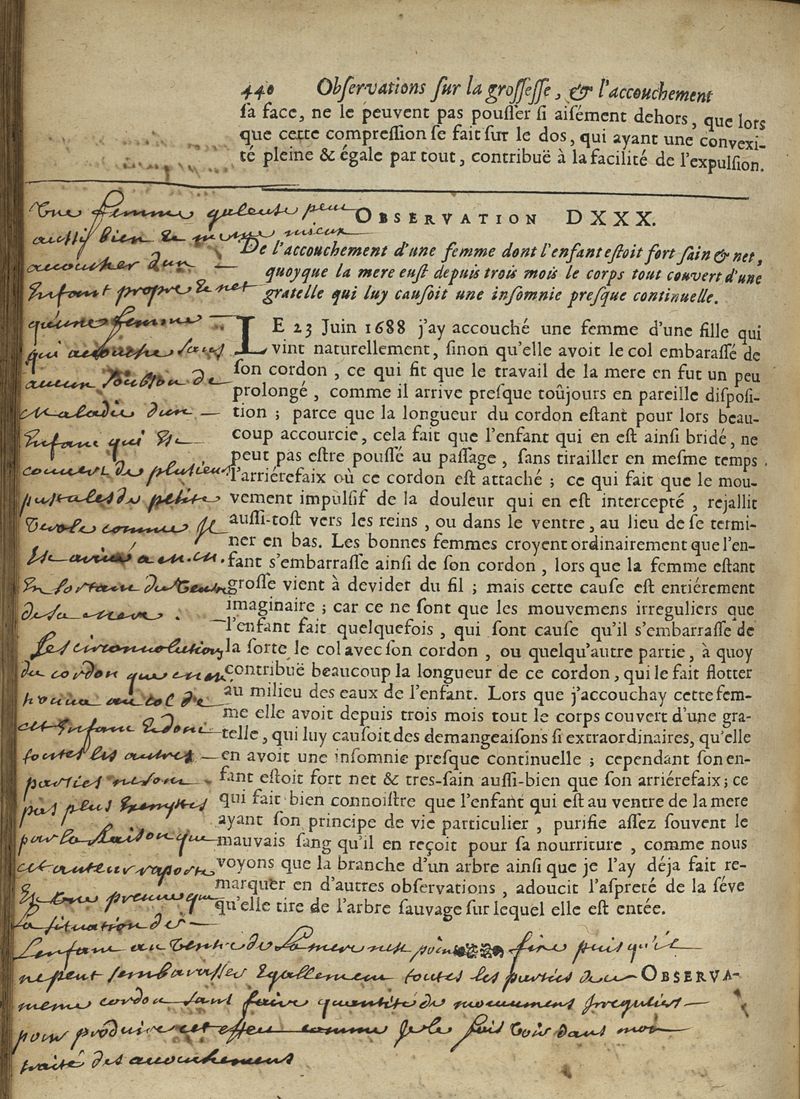 440 Obſervations ſur la groſſeſſe, & l'accouchement
ſa face, ne le peuvent pas pouſſer ſi aiſément dehors, que lors
que cette compreſſion ſe fait ſur le dos, qui ayant une convexi-
té pleine & égale par tout, contribuë à la facilité de l'expulſion.
OBSERVATION DXXX.
De l'accouchement d'une femme dont l'enfant eſtoit fort ſain & net,
quoyque la mere euſt depuis trois mois le corps tout couvert d'une
gratelle qui luy cauſoit une inſomnie preſque continuelle.
LE 23 Juin 1688 j'ay accouché une femme d'une fille qui
vint naturellement, ſinon qu'elle avoit le col embaraſſé de
ſon cordon, ce qui fit que le travail de la mere en fut un peu
prolongé, comme il arrive preſque toûjours en pareille diſpoſi-
tion ; parce que la longueur du cordon eſtant pour lors beau-
coup accourcie, cela fait que l'enfant qui en eſt ainſi bridé, ne
peut pas eſtre pouſſé au paſſage, ſans tirailler en meſme temps
l'arriérefaix où ce cordon eſt attaché ; ce qui fait que le mou-
vement impulſif de la douleur qui en eſt intercepté, rejallit
auſſi-toſt vers les reins, ou dans le ventre, au lieu de ſe termi-
ner en bas. Les bonnes femmes croyent ordinairement que l'en-
fant s'embarraſſe ainſi de ſon cordon, lors que la femme eſtant
groſſe vient à devider du fil ; mais cette cauſe eſt entiérement
imaginaire ; car ce ne ſont que les mouvemens irreguliers que
l'enfant fait quelquefois, qui ſont cauſe qu'il s'embarraſſe de
la ſorte le col avec ſon cordon, ou quelqu'autre partie, à quoy
contribuë beaucoup la longueur de ce cordon, qui le fait flotter
au milieu des eaux de l'enfant. Lors que j'accouchay cette fem-
me elle avoit depuis trois mois tout le corps couvert d'une gra-
telle, qui luy cauſoit des demangeaiſons ſi extraordinaires, qu'elle
en avoit une inſomnie preſque continuelle ; cependant ſon en-
fant eſtoit fort net & tres-ſain auſſi-bien que ſon arriérefaix ; ce
qui fait bien connoiſtre que l'enfant qui eſt au ventre de la mere
ayant ſon principe de vie particulier, purifie aſſez ſouvent le
mauvais ſang qu'il en reçoit pour ſa nourriture, comme nous
voyons que la branche d'un arbre ainſi que je l'ay déja fait re-
marquer en d'autres obſervations, adoucit l'aſpreté de la ſéve
qu'elle tire de l'arbre ſauvage ſur lequel elle eſt entée.
OBSERVA-
Une femme
aussi bien
accoucher d'un
Enfant propre & net
qu'une femme
qui accouche sans
aucun soubson de
maladie d'un
Enfant qui Est
couvert de plusieurs
pustules de petite
Verole comme Il
Est arrivé
En sortant du Ventre
de sa mere.
Les circonvolutions
du cordon
au col de
cet Enfant & dont
toutes les autres
parties ne sont
pas plus Exemptes
par la Raison que
cet auteur raporte
Est Une preuve que
La situation de
L'enfant au Ventre de La mere n'est point fixe puis qu'il
ne peut sembarasser Egallement toutes les parties de
meme cordon sans faire quantité de mouvemens Irreguliers
pour produire cet effet comme Je le fais Voir dans mon
traité des accouchemens